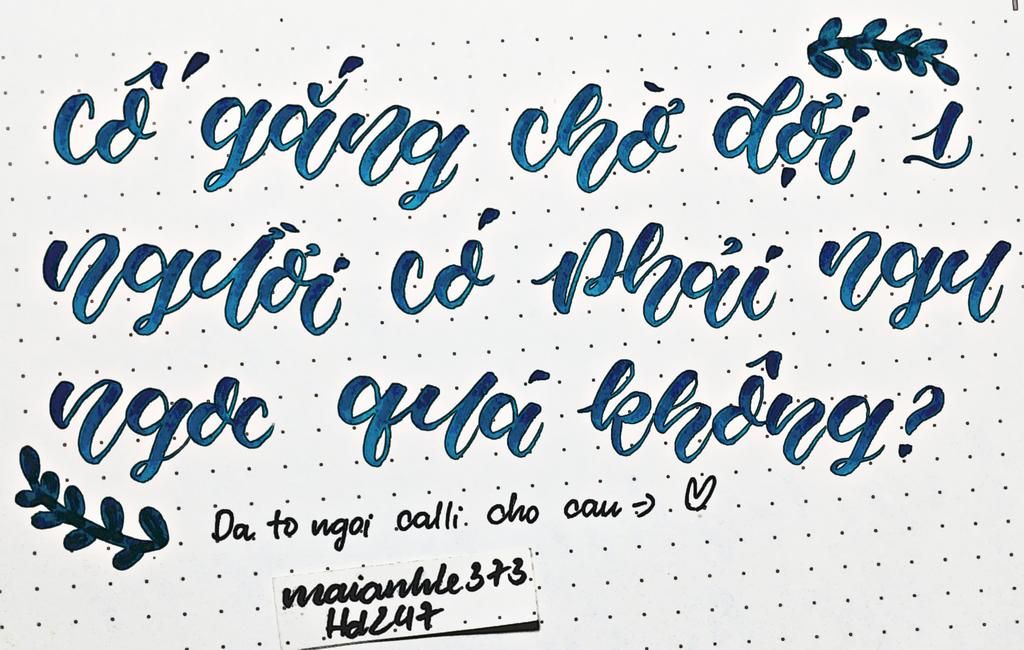 Cố gắng chờ đợi 1
người có phải ngu
ngoc quá không?
Da. to ngoi calli. cho cau =>
maianhle373
Hd247